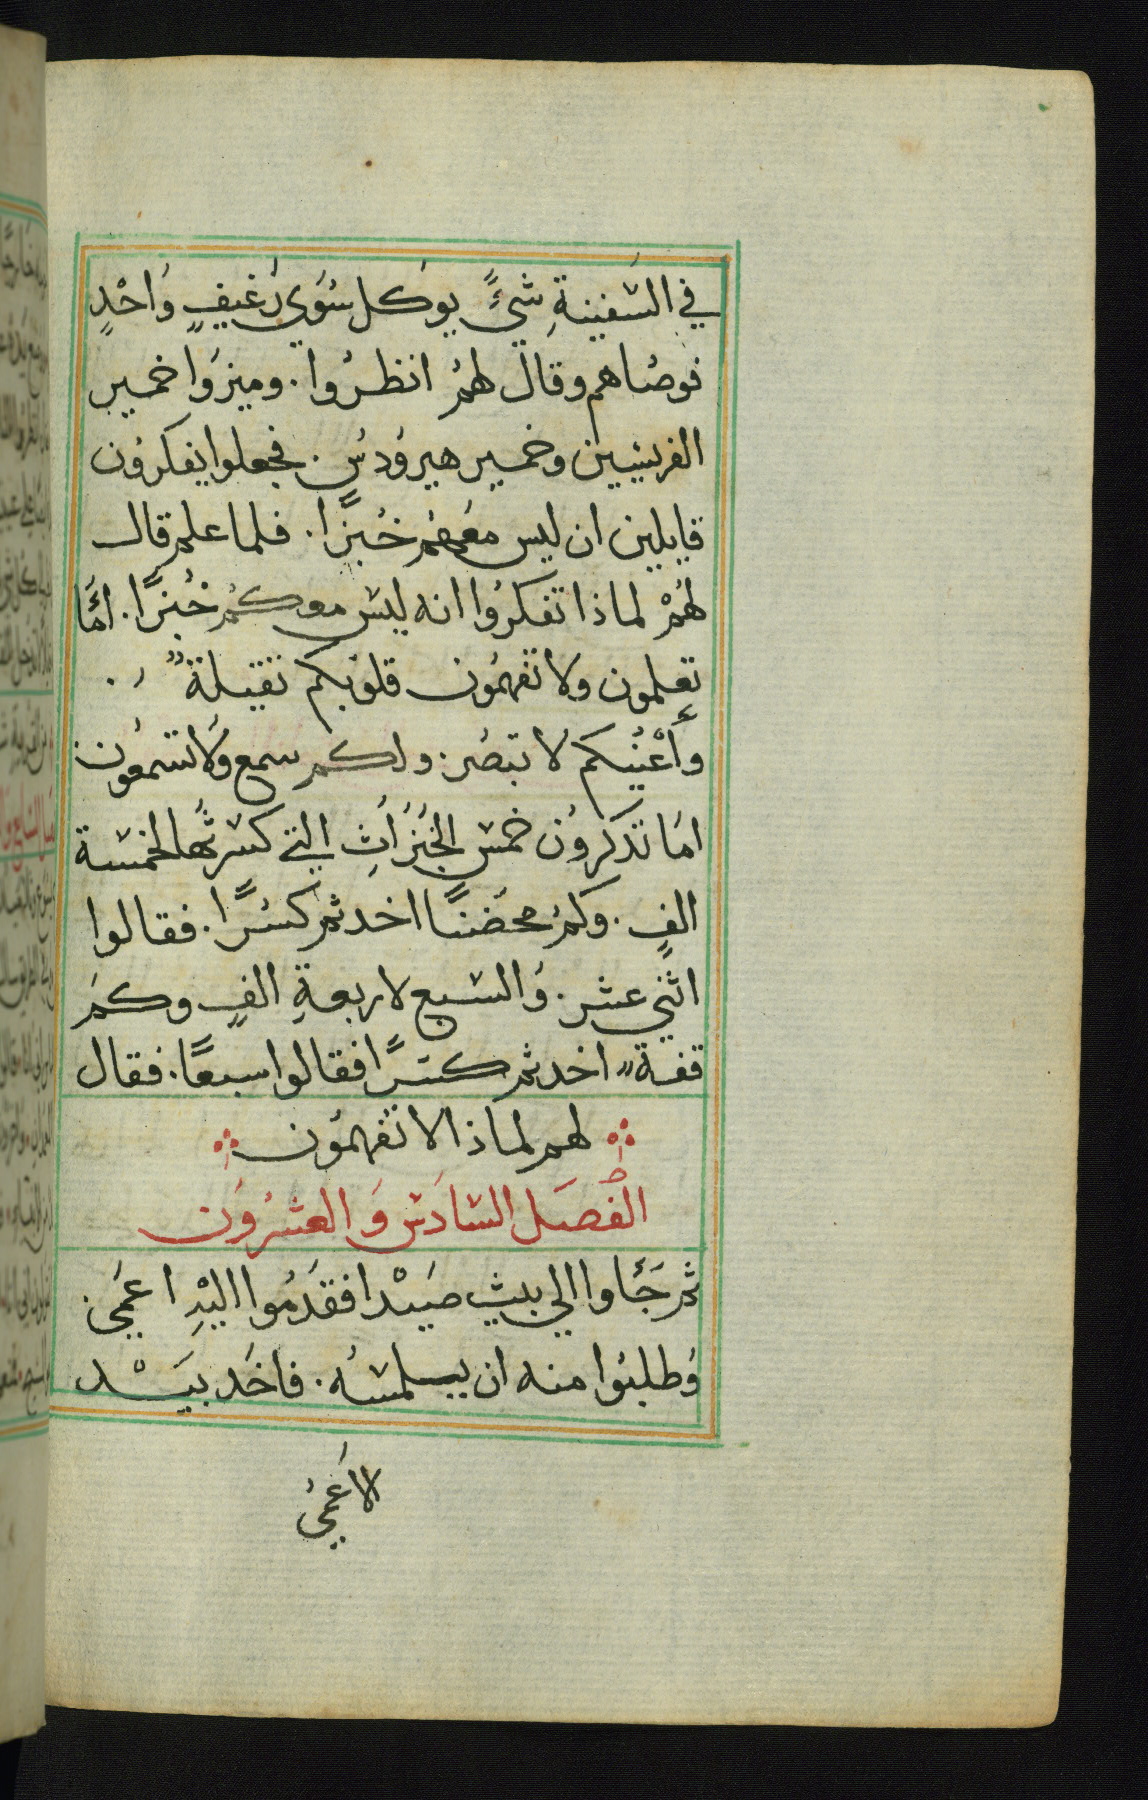 في السَفينةِ شيءً يوكل سُوَي رُغيفٍ وَاحْدٍ
فوصُاهم وقال لهمُ انظرُوا. وميزوَا خمير
الفريسيين وخمير هيرُودُسِ. فجعلوا يفكروُن
قايلين ان ليس معُهمُ خُبزًا. فلما علمر قال
لهُمْ لماذا تفكرُوا انه ليسَ معكمُ خُبزًا. امَّا
تعلمون ولا تفهمُون قلوُبكم ثقيلةٌ .
وأعْيُنكم لا تبصُر. ولكم سمع وَلا تسَمعوُن
امَا تذكروُن خمسَ الخبُزاُتِ التي كسَرتُها لخمسَة
الفٍ. وكمُ محضنًا اخدتم كسُرًا. فقالوا
اثني عشر. وُالسَبع لاربعةِ الفٍ وكمَ
قفة اخدتم كسَرًا فقالوا سبعًا. فقال
لهم لماذا لا تفهموُن
الفصَل السَادَسَ وَالعشرُوَن
ثم جَأوا الي بيت صَيْدا فقدَموُا اليْهِ اعمَي.
وُطلبوُا منه ان يلمسَهُ. فاخَد بيَدْ
الاعَميُ